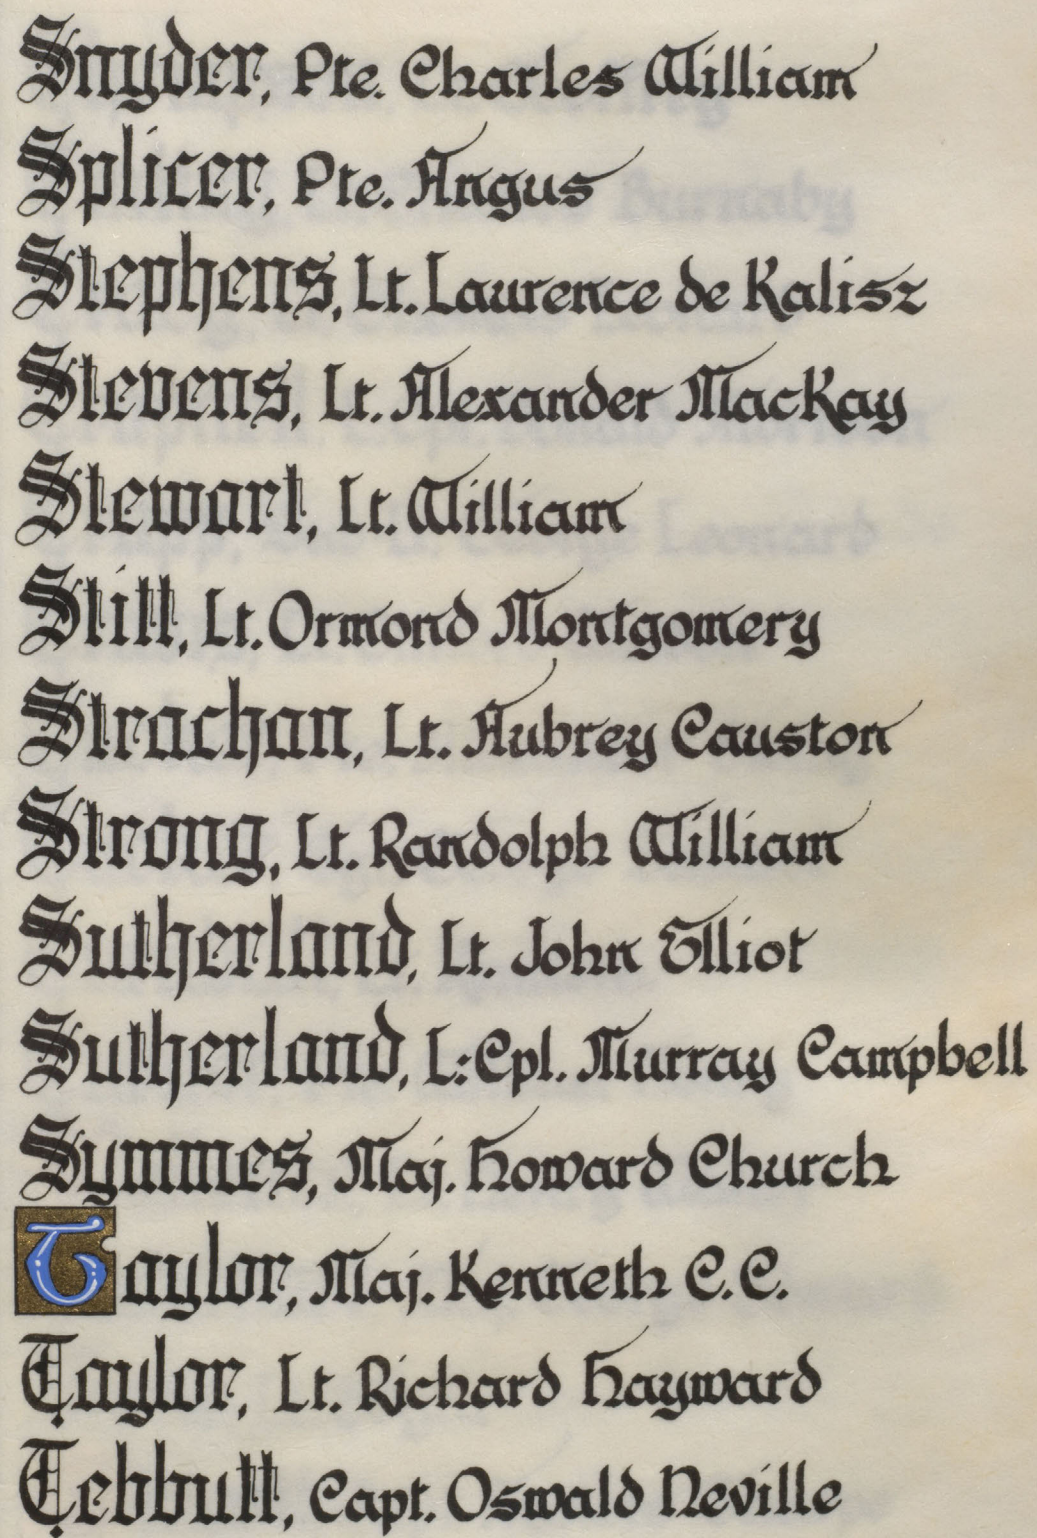 Snyder, Pte. Charles William
Splicer, Pte. Angus
Stephens, Lt. Laurence de Kalisz
Stevens, Lt. Alexander MacKay
Stewart, Lt. William
Stitt, Lt. Ormond Montgomery
Strachan, Lt. Aubrey Causton
Strong, Lt. Randolph William
Sutherland, Lt. John Elliot
Sutherland, L:Cpl. Murray Campbell
Symmes, Maj. Howard Church
Taylor, Maj. Kenneth C.C.
Taylor, Lt. Richard Hayward
Tebbutt, Capt. Oswald Neville